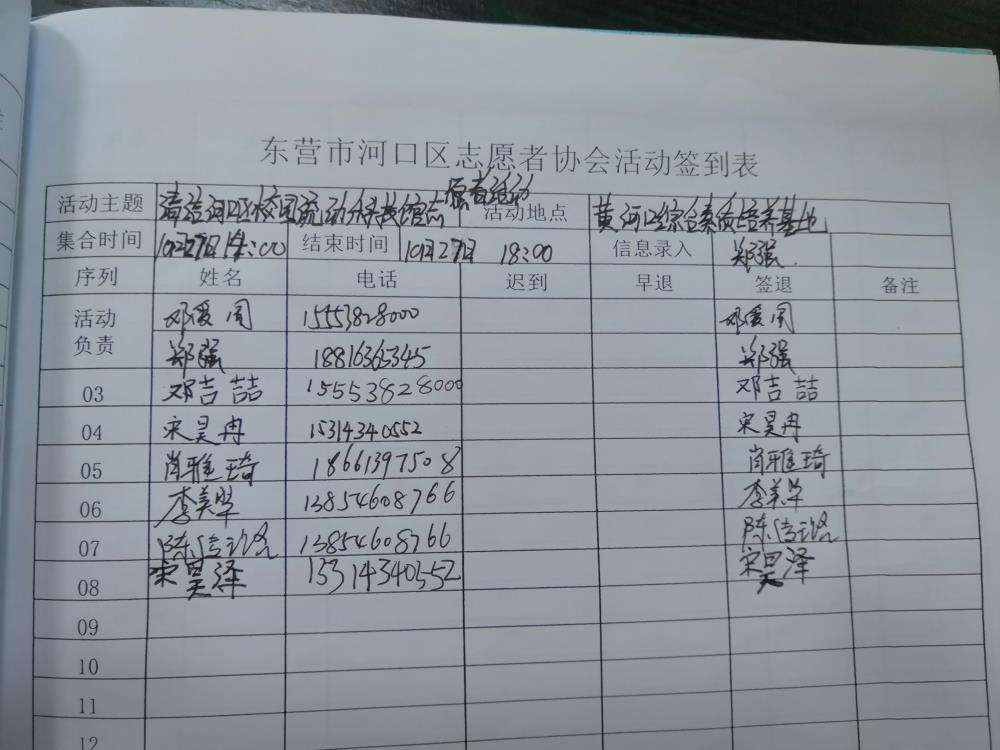 东营市河口区志愿者协会活动签到表
活动主题 清洁河口区校园流动科技馆志愿者活动 活动地点 黄河口综合素质培养基地
集合时间 10月27日 :00 结束时间 10月27日 18:00 信息录入 郑强
序列 姓名 电话 迟到 早退 签退 备注
活动负责 邓爱阁 15553828000 邓爱阁
郑强 18816365345 郑强
03 邓吉喆 15553828000 邓吉喆
04 宋昊冉 15314340552 宋昊冉
05 肖雅琦 18661397508 肖雅琦
06 李美 13854608766 李美
07 陈信 13854608766 陈信
08 宋昊泽 13314340552 宋昊泽
09
10
11
12